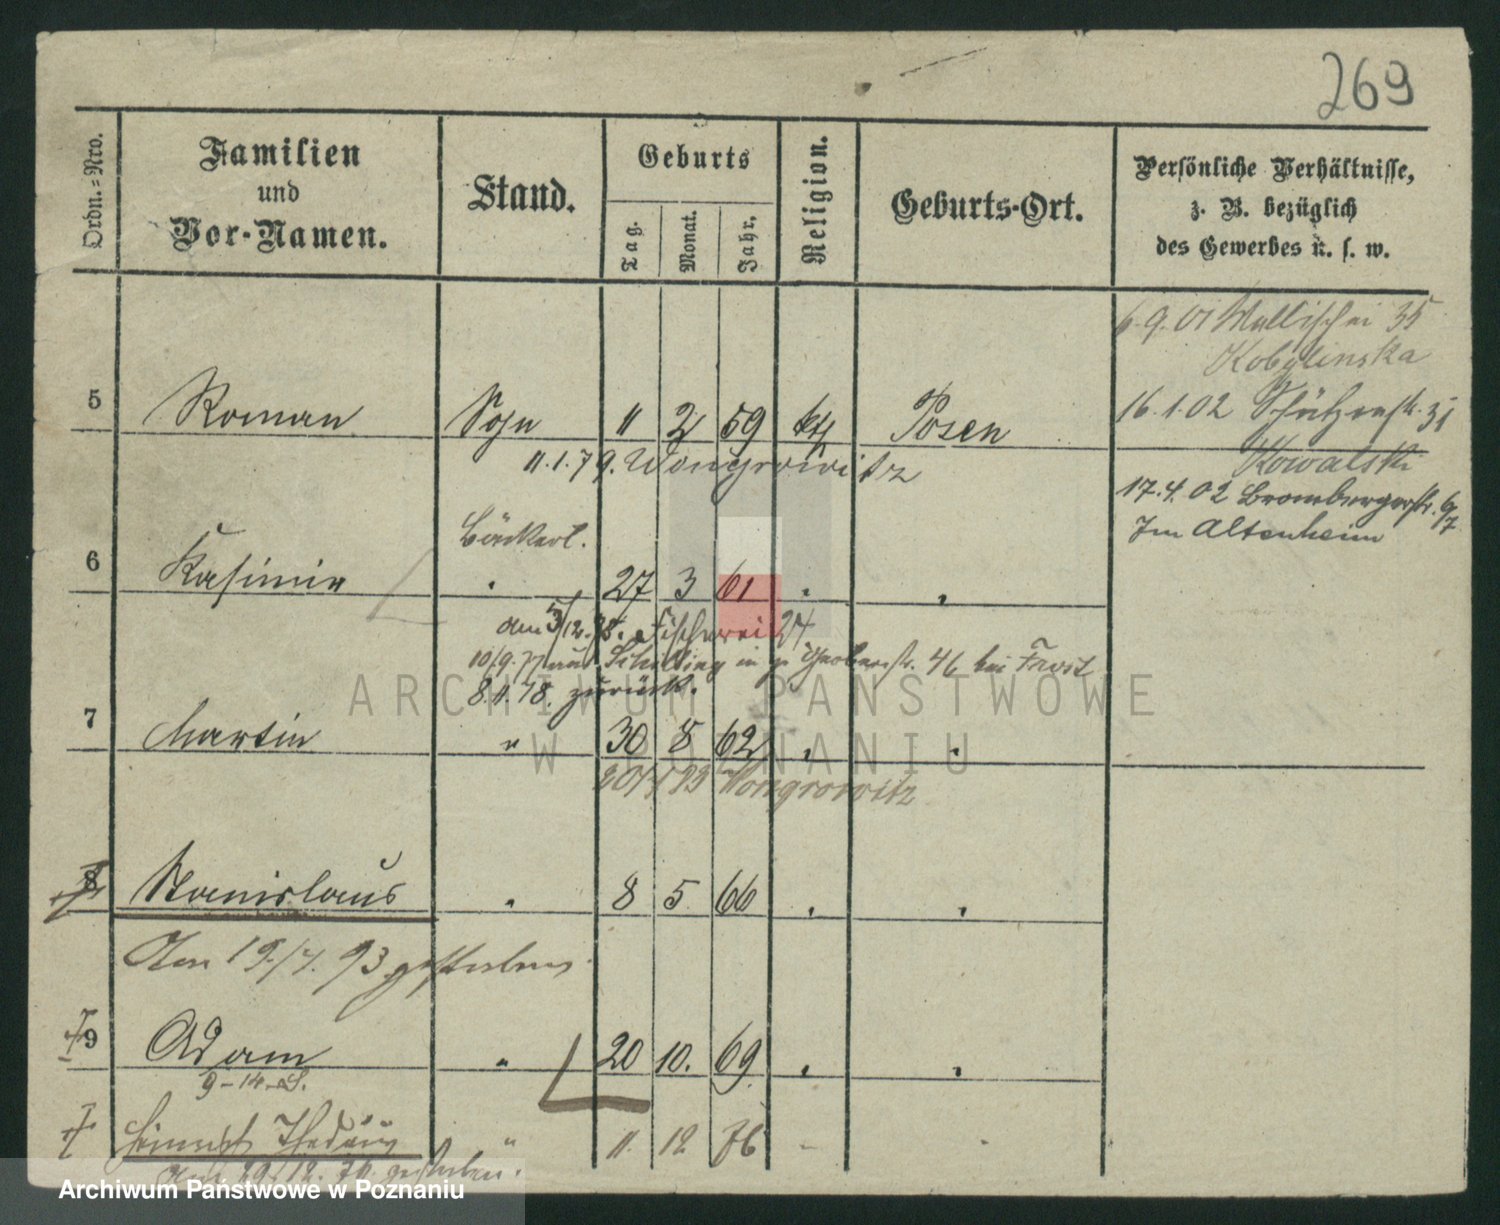 269
Ordn.=Nro.
Familien
und
Vor-Namen.
Stand.
Geburts
Tag.
Monat.
Jahr.
Religion.
Geburts-Ort.
Persönliche Verhältnisse,
z. B. bezüglich
des Gewerbes u. s. w.
6.9.01 Wallischei 35
Kobylinska
5 Roman Sohn 11 2 59 kth Posen
16.1.02 Schützenstr. 31
Kowalski
11.1.79. Wongrowitz
17.4.02 Brombergerstr. 6/7
Im Altenheim
Bäckerl.
6 Kasimir " 27 3 61 " "
den 5/12. 78. Fischerei 27
10/9.77 aus Schilling in Gerberstr. 46 bei Frost
8.11.78. zurück.
7 Martin " 30 8 62 " "
Wongrowitz
8 Stanislaus " 8 5 66 " "
Den 19./7. 93 gestorben
9 Adam " 20 10. 69 " "
9-14.
Heinrich Thadäus " 11. 12 76 - "
12. 76 gestorben.
ARCHIWUM PAŃSTWOWE
W POZNANIU
Archiwum Państwowe w Poznaniu